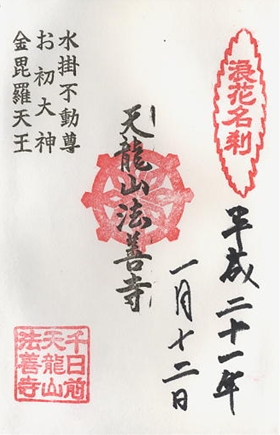 浪花名刹
平成二十一年
一月十二日
天龍山法善寺
水掛不動尊
お初大神
金毘羅天王
千日前
天龍山
法善寺